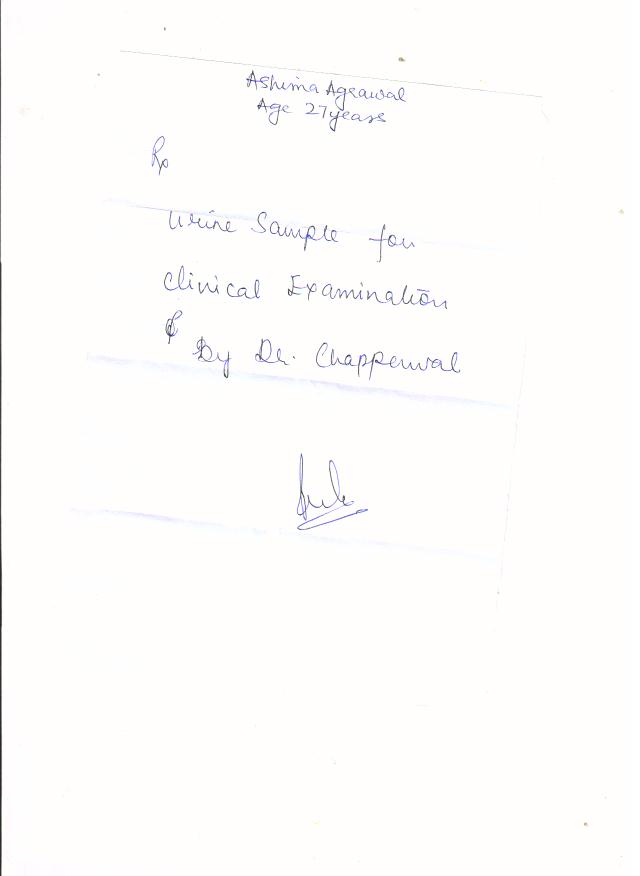 Ashima Agrawal
Age 27 years
Rx
Urine Sample for
Clinical Examination
By Dr. Chapperwal